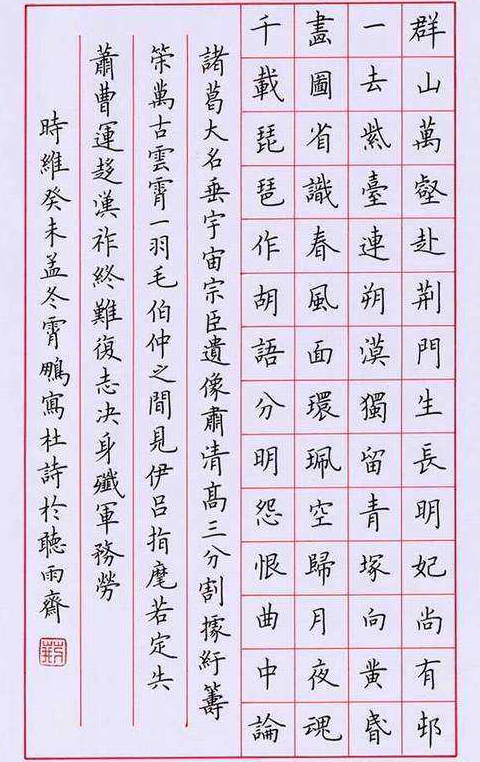 群山萬壑赴荆門生長明妃尚有邨
一去紫臺連朔漠獨留青塚向黄昏
畫圖省識春風面環珮空歸月夜魂
千載琵琶作胡語分明怨恨曲中論
諸葛大名垂宇宙宗臣遺像肅清高三分割據紆籌
策萬古雲霄一羽毛伯仲之間見伊吕指麾若定失
蕭曹運趍漢祚終難復志决身殲軍務勞
時維癸未孟冬霄鵬寫杜詩於聽雨齋